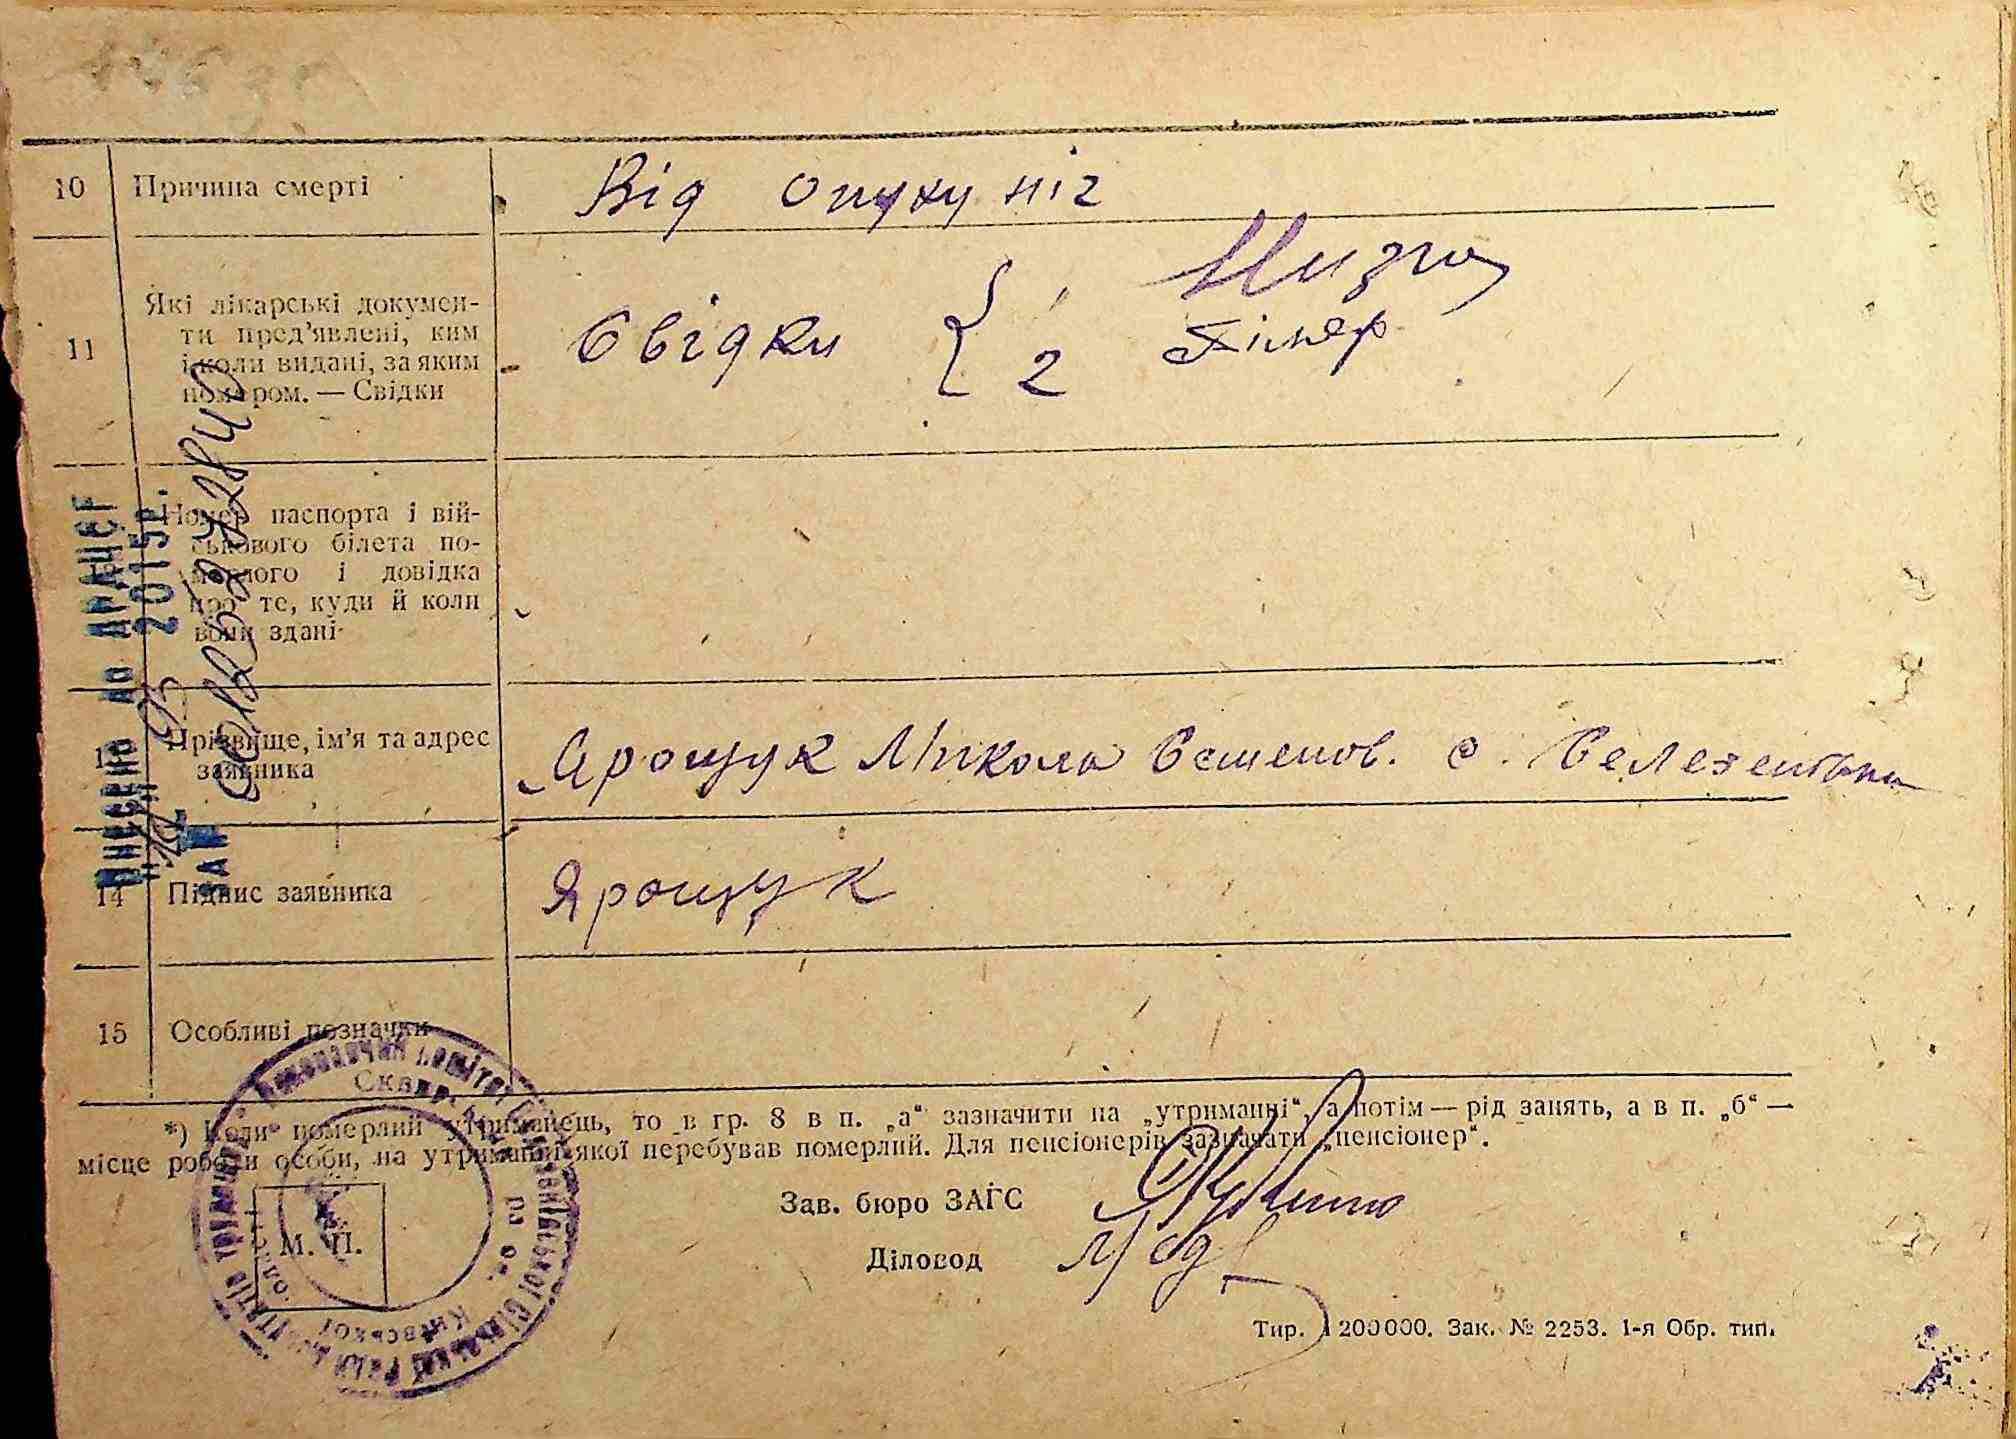 10 Причина смерті Від опуху ніг
11 Які лікарські докумен-
ти пред'явлені, ким
і коли видані, за яким
номером. — Свідки
Свідки { 1
2
Номер паспорта і вій-
ськового білета по-
мерлого і довідка
про те, куди й коли
вони здані
Прізвище, ім'я та адрес
заявника
Ярощук Микола Семенов. с. Селезенівка
14 Підпис заявника Ярощук
15 Особливі позначки
*) Коли померлий утриманець, то в гр. 8 в п. „а“ зазначити на „утриманні“, а потім — рід занять, а в п. „б“ —
місце роботи особи, на утриманні якої перебував померлий. Для пенсіонерів зазначати „пенсіонер“.
Зав. бюро ЗАГС
М. П.
Діловод
Тир. 200000. Зак. № 2253. 1-я Обр. тип.
Внесено до ДРАЦСГ
2015р.
Виконавчий комітет
Київської